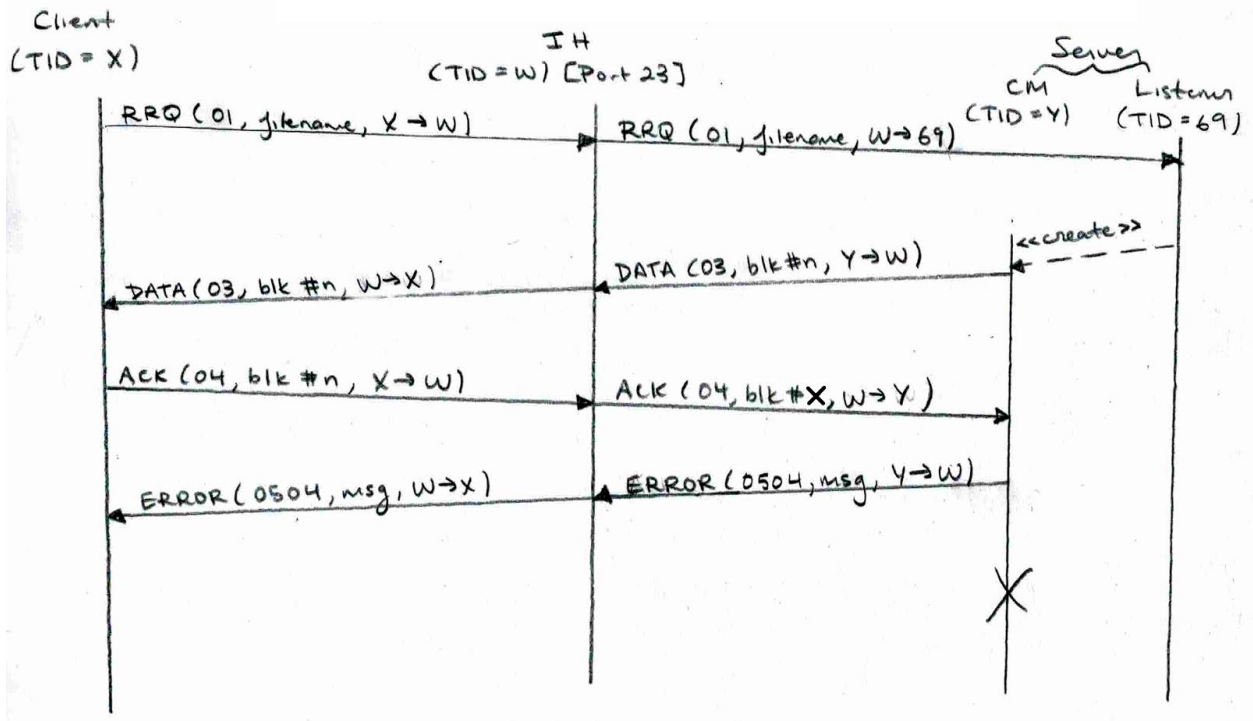 Client
(TID = X)
IH
(TID = W) [Port 23]
Server
CM
(TID = Y)
Listener
(TID = 69)
RRQ (01, filename, X → W)
RRQ (01, filename, W → 69)
<<create>>
DATA (03, blk #n, Y → W)
DATA (03, blk #n, W → X)
ACK (04, blk #n, X → W)
ACK (04, blk #X, W → Y)
ERROR (0504, msg, Y → W)
ERROR (0504, msg, W → X)
X